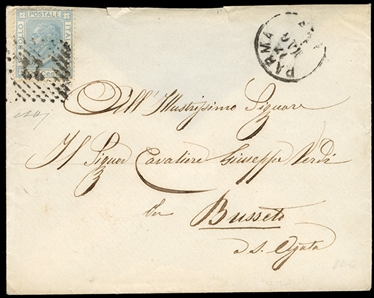 POSTALE
PARMA
All' Illustrissimo Signore
Il Signor Cavaliere Giuseppe Verdi
Per Busseto
a S. Agata